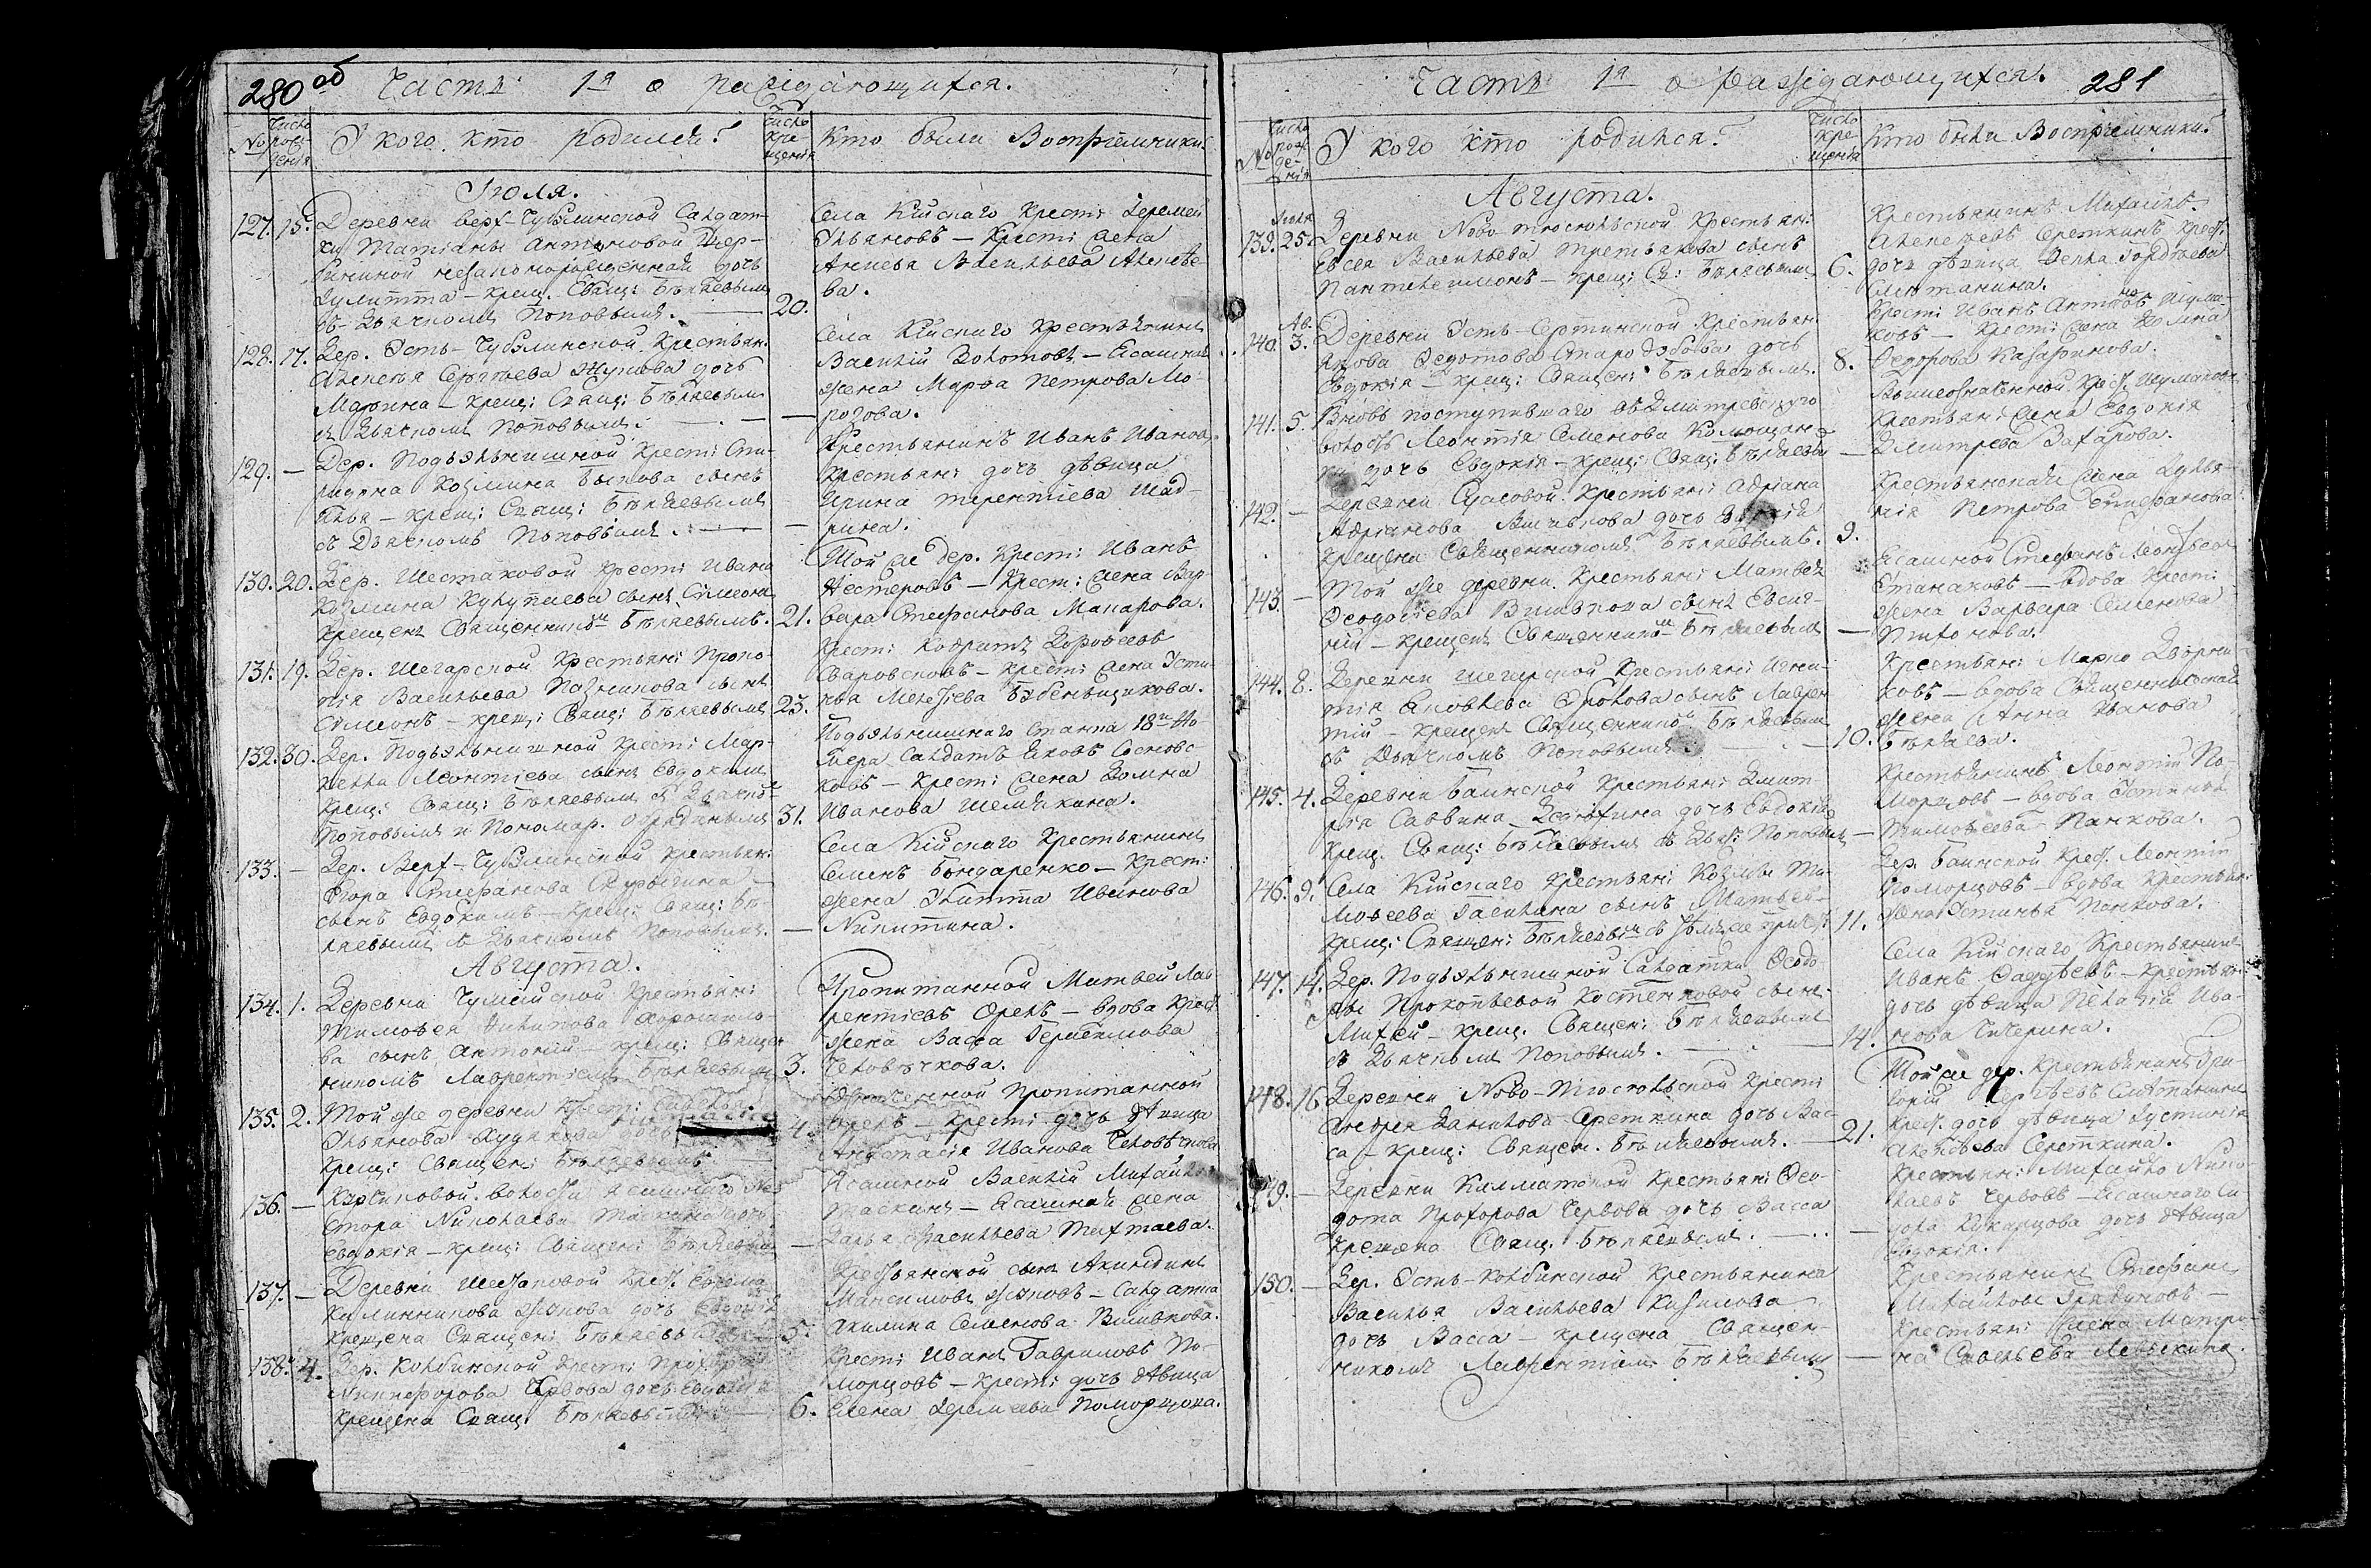 280 об Часть 1я о раждающихся.
№ Число рожденія У кого кто родился? Число крещенія Кто были Воспріемники.
Іюля.
127. 15. Деревни Верх-Чубулинской Салдат-
ки Татіаны Антоновой
незаконорожденная дочь
Іулитта – крещ. Свящ: Бѣляевымъ
съ Дьячкомъ Поповымъ. — 20.
Села Кійскаго Крест: Еремей
Ульяновъ – Крест: жена
Анисья Васильева Алексѣе-
ва.
128. 17. Дер. Усть-Чубулинской Крестьян:
Алексѣя Сергѣева Жукова дочь
Марина – крещ: Свящ: Бѣляевымъ
съ Дьячкомъ Поповымъ. — —
Села Кійскаго Крестьянинъ
Василій Золотовъ – Есашная
жена Марѳа Петрова Мо-
рогова.
129. — Дер. Подъельнишной Крест: Спи-
ридона Козмина Быкова сынъ
Илья – крещ: Свящ: Бѣляевымъ
съ Дьячкомъ Поповымъ. — —
Крестьянинъ Иванъ Ивановъ
Крестьян: дочь дѣвица
Ирина Терентіева Шад-
рина.
130. 20. Дер. Шестаковой Крест: Ивана
Козмина сынъ Симеонъ
Крещенъ Священникомъ Бѣляевымъ. 21.
Той же дер. Крест: Иванъ
Нестеровъ – Крест: жена Вар-
вара Стефанова Макарова.
131. 19. Дер. Шегарской Крестьян: Проко-
пія Васильева Пазникова сынъ
Симеонъ – крещ: Свящ: Бѣляевымъ 23.
Крест: Кодратъ Дороѳеевъ
Сваровсковъ – Крест: жена Усти-
нья Бубенщикова.
132. 30. Дер. Подъельнишной Крест: Мар-
келла Леонтіева сынъ Евдокимъ
Крещ: Свящ: Бѣляевымъ съ Дьячко
Поповымъ и Пономар. 31.
Подъельнишнаго Станка 18го Но-
мера Салдатъ Яковъ Сосновс-
ковъ – Крест: жена Домна
Иванова Шемякина.
133. — Дер. Верх-Чубулинской Крестьян:
Егора Стефанова Скурыгина
сынъ Евдокимъ – Крещ: Свящ: Бѣ-
ляевымъ съ Дьячкомъ Поповымъ. —
Села Кійскаго Крестьянинъ
Семенъ Бондаренко – Крест:
жена Улитта Иванова
Никитина.
Августа.
134. 1. Деревни Чумайской Крестьян:
Тимоѳея Никитова Хорошило-
ва сынъ Антоній – крещ: Священ
никомъ Лаврентіемъ Бѣляевымъ 3.
Пропитанной Матвей Лав-
рентіевъ Орелъ – вдова Крест
жена Васса Герасимова
Человѣчкова.
135. 2. Той же деревни Крест: Савелья
Ульянова Худякова дочь
Крещ: Священ: Бѣляевымъ 4.
Означенной Пропитанной
Орелъ – Крест: дочь дѣвица
Анастасія Иванова Человѣчкова
136. — волости Ясашнаго Не-
стора Николаева Таскина дочь
Евдокія – крещ: Священ: Бѣляевым —
Ясашной Василій Михайловъ
Таскинъ – Ясашная жена
Дарья Васильева Тихтаева.
137. — Деревни Шестаковой Крест. Евсема
Калинникова Жукова дочь Евдокія
Крещена Священ: Бѣляевымъ 5.
Крестьянской сынъ Акиндинъ
Максимовъ Жуковъ – Салдатка
Акилина Семенова Вшивкова.
138. 4. Дер. Колбинской Крест: Прохора
Никифорова Червова дочь Евдокія
Крещена Свящ. Бѣляевымъ 6.
Крест: Иванъ Гавриловъ По-
морцовъ – Крест: дочь дѣвица
Елена Еремеева Поморцова.
Часть 1я о раждающихся. 281
№ Число рожденія У кого кто родился? Число крещенія Кто были Воспріемники?
Августа.
139. Іюля 25. Деревни Ново-Тюсюльской Крестьян:
Евсея Васильева Третьякова сынъ
Пантелеимонъ – крещ: Св: Бѣляевымъ 6.
Крестьянинъ Михаилъ
Алексѣевъ Сереткинъ Крест.
дочь дѣвица Ѳекла Гордѣева
Сметанина.
140. Ав. 3. Деревни Усть-Сертинской Крестьян.
Якова Ѳедотова Стародубова дочь
Евдокія – крещ: Священ: Бѣляевымъ. 8.
Крест: Иванъ Антоновъ Шума-
ковъ – Крест: жена Домна
Ѳедорова Казаринова.
141. 5. Вновь поступившаго въ Дмитревскую
волость Леонтія Семенова
дочь Евдокія – Крещ: Свящ: Бѣляевым —
Вышеозначенной Крест. Шумаковъ
Крестьян: жена Евдокія
Дмитрева Захарова.
142. — Деревни Сусловой Крестьян: Адріана
Адріанова Вшивкова дочь
Крещена Священникомъ Бѣляевымъ. 9.
Крестьянская жена Іуліа-
нія Петрова Стефанова.
143. — Той же деревни Крестьян: Матвея
Ѳеодосіева Вшивкова сынъ Евсиг-
ній – крещенъ Священникомъ Бѣляевымъ —
Есашной Стефанъ Леонтьевъ
Стамаковъ – вдова Крест:
жена Варвара Семенова
Пихонова.
144. 8. Деревни Шегарской Крестьян: Игна-
тія Яковлева Орлова сынъ Лаврен
тій – Крещенъ Священникомъ Бѣляевымъ
съ Дьячкомъ Поповымъ — 10.
Крестьян: Марко Дворни-
ковъ – вдова Священническая
жена Анна Иванова
Бѣляева.
145. 4. Деревни Баимской Крестьян: Дмит-
рія Саввина дочь Евдокія
Крещ. Свящ: Бѣляевымъ съ Дьяч: Поповымъ —
Крестьянинъ Леонтій По-
морцовъ – вдова Устинья
Тимоѳеева Панкова.
146. 9. Села Кійскаго Крестьян: Козьмы Ти-
моѳеева Галкина сынъ Матвей
Крещ: Священ: Бѣляевымъ съ тѣмъ же причт: 11.
Дер. Баимской Крест. Леонтій
Поморцовъ – вдова Крестьян:
жена Устинья Панкова.
147. 14. Дер. Подъельнишной Салдатки Ѳеодо-
сьи Прокопьевой Костенковой сынъ
Михей – крещ. Священ: Бѣляевымъ
съ Дьячкомъ Поповымъ. — 14.
Села Кійскаго Крестьянинъ
Иванъ Ѳаддѣевъ – Крестьян:
дочь дѣвица Пелагія Ива-
нова Чичерина.
148. 16 Деревни Ново-Тюсюльской Крест:
Андрея Данилова Сереткина дочь Вас-
са – крещ: Священ. Бѣляевымъ. — 21.
Той же дер. Крестьянинъ Гри-
горій Сергѣевъ Сметанинъ
Крест. дочь дѣвица Іустинія
Алексѣева Сереткина.
149. — Деревни Килматской Крестьян: Ѳео-
дота Прохорова Червова дочь Васса
Крещена Свящ. Бѣляевымъ. — —
Крестьян: Михайло Нико-
лаевъ Червовъ – Есашнаго Си-
дора Кукарцова дочь дѣвица
Евдокія.
150. — Дер. Усть-Колбинской Крестьянина
Василья Васильева Казилова
дочь Васса – крещена Священ-
никомъ Лаврентіемъ Бѣляевымъ —
Крестьянинъ Стефанъ
Михайловъ Гладиновъ –
Крестьян: жена Матро-
на Савельева Левыкина.